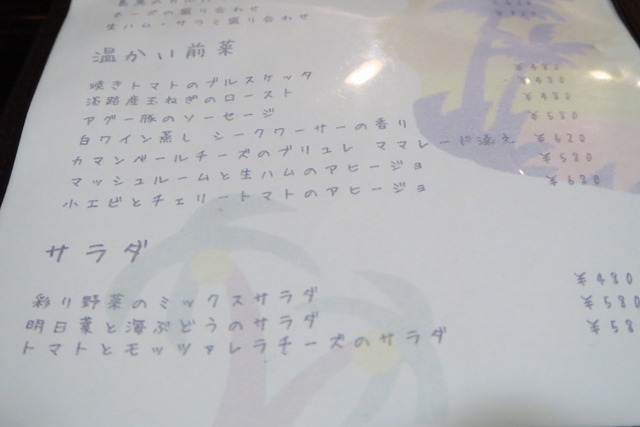 チーズの盛り合わせ
生ハム・サラミ盛り合わせ
温かい前菜
焼きトマトのブルスケッタ ¥480
淡路産玉ねぎのロースト ¥480
アグー豚のソーセージ ¥480
白ワイン蒸し シークワーサーの香り
カマンベールチーズのブリュレ ママレード添え ¥620
マッシュルームと生ハムのアヒージョ ¥580
小エビとチェリートマトのアヒージョ ¥680
サラダ
彩り野菜のミックスサラダ ¥480
明日葉と海ぶどうのサラダ ¥580
トマトとモッツァレラチーズのサラダ ¥58